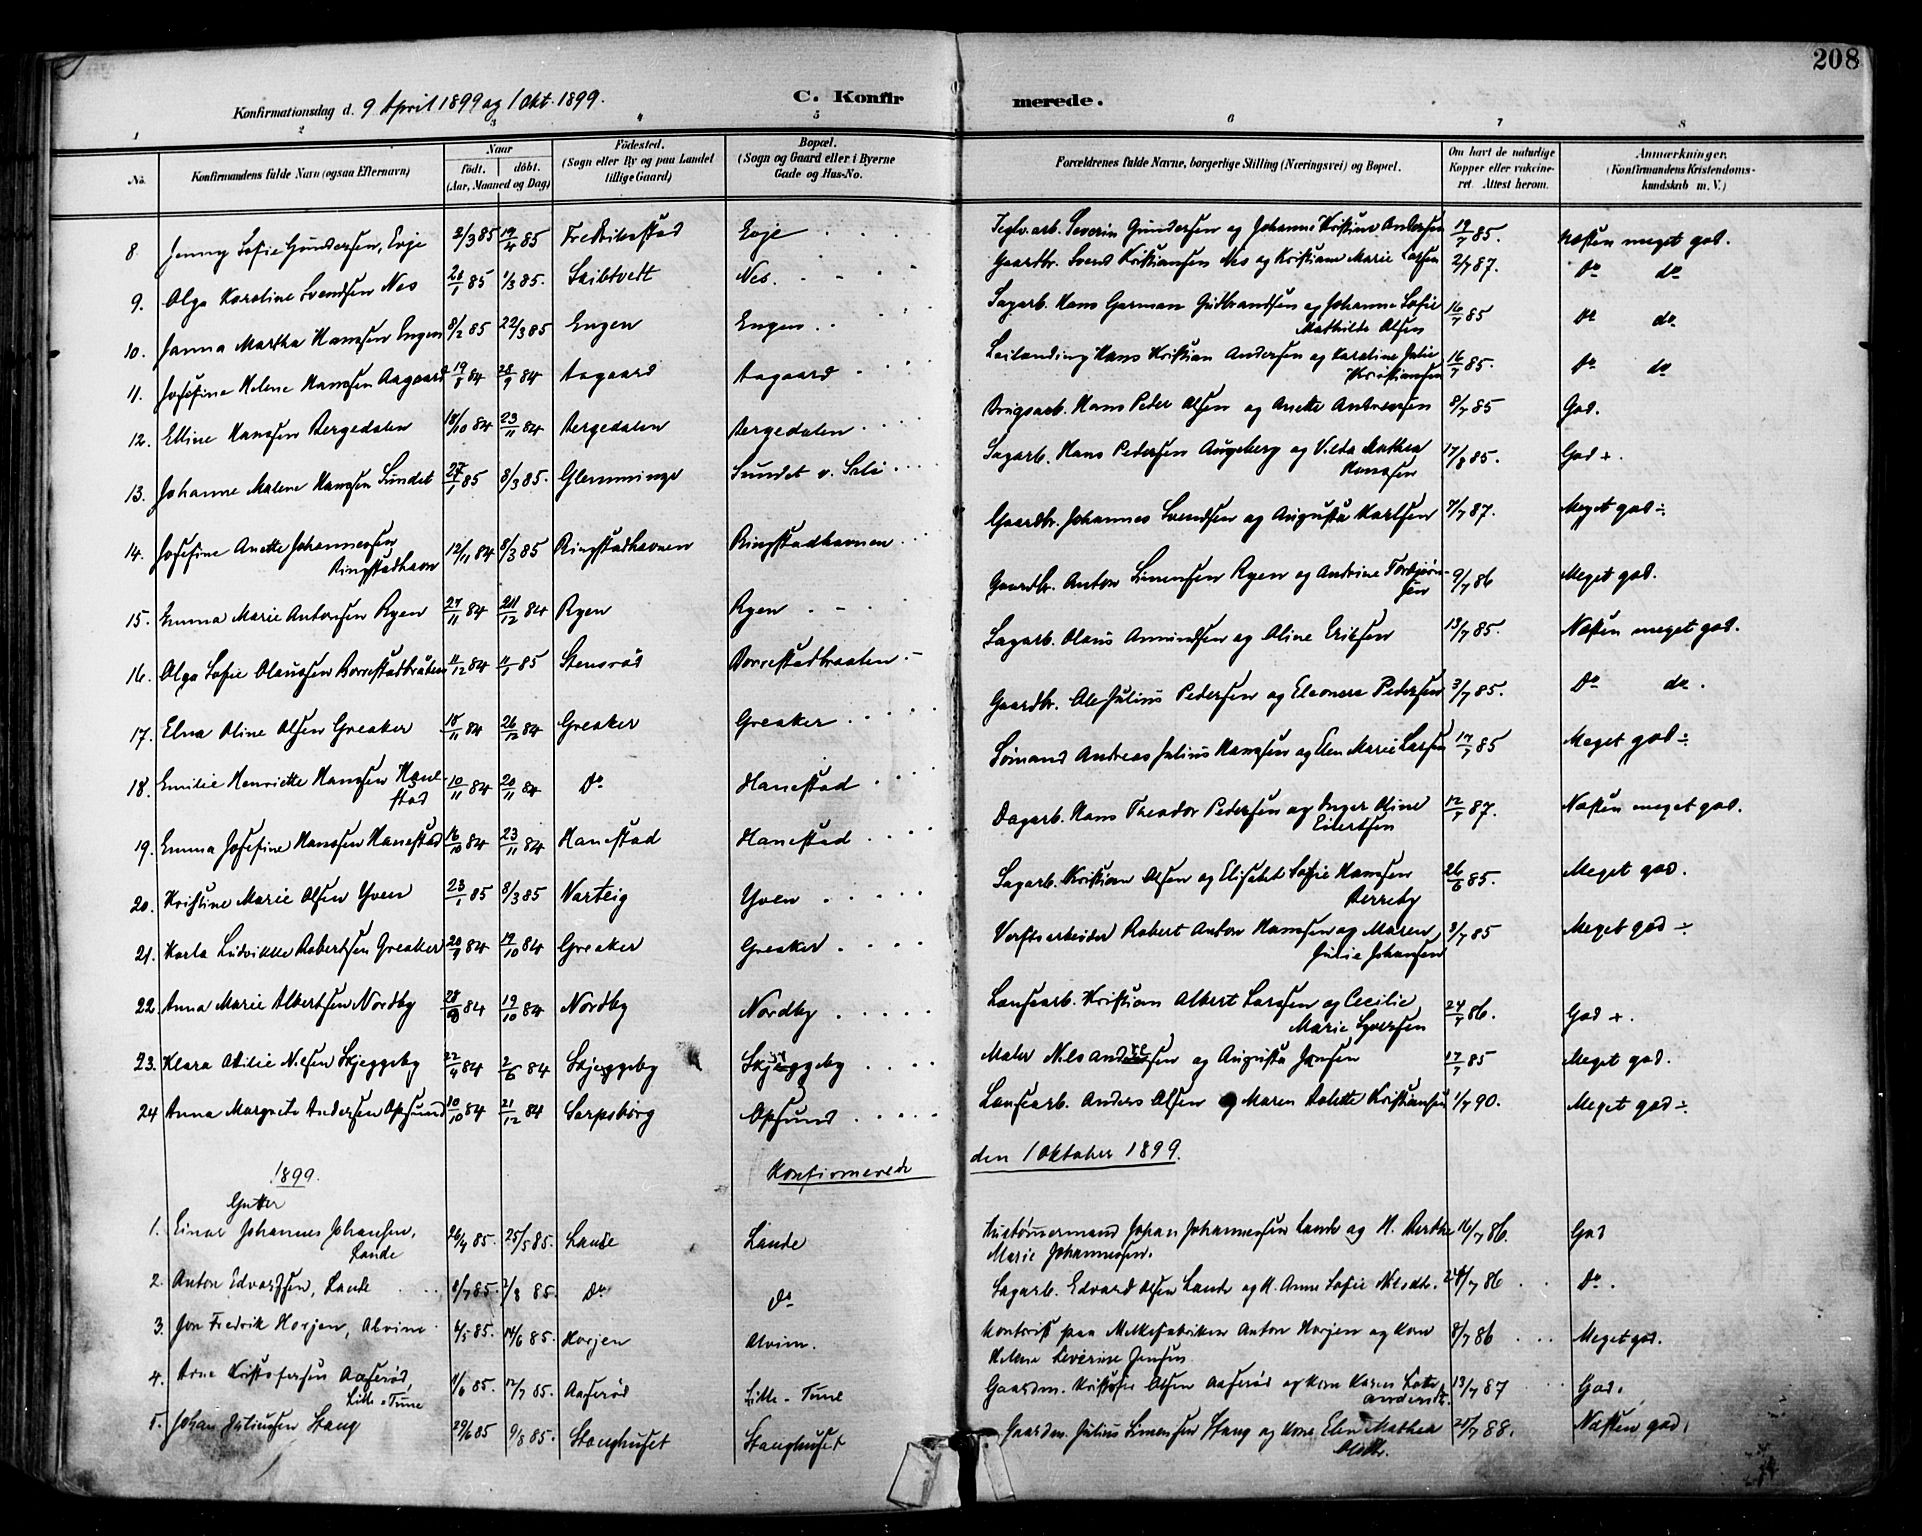 208
Konfirmationsdag d. 9 April 1899 og 1 Okt. 1899.
C. Konfirmerede.
1 2 3 4 5 6 7 8
No. Konfirmandens fulde Navn (ogsaa Efternavn) Naar födt. döbt. (Aar, Maaned og Dag) Födested. (Sogn eller By og paa Landet tillige Gaard) Bopæl. (Sogn og Gaard eller i Byerne Gade og Hus-No. Forældrenes fulde Navne, borgerlige Stilling (Næringsvei) og Bopæl. Om havt de naturlige Kopper eller vakcineret. Attest herom. Anmærkninger. (Konfirmandens Kristendomskundskab m. V.)
8. Jenny Sofie Gundersen, Evje 2/3 85 19/4 85 Fredriksstad Evje Teglv.arb. Severin Gundersen og Johanne Kristine Andersen 19/7 85. Næsten meget god.
9. Olga Karoline Svendsen Nes 20/1 85 1/3 85. Skibtvedt Nes. Gaardbr. Svend Kristiansen Nes og Kristiane Marie Larsen 2/7 87. Do do
10. Janna Martha Hanssen Engen 8/2 85 22/3 85 Engen Engen Sagarb. Hans Herman Gudbrandsen og Johanne Sofie Mathilde Olsen 16/7 85 Do do
11. Josefine Helene Hanssen Aagaard 19/8 84 28/9 84 Aagaard Aagaard Leilending Hans Kristian Andersen og Karoline Julie Kristiansen 16/7 85. Do do
12. Elline Hanssen Bergedalen 18/10 84 23/11 84 Bergedalen Bergedalen Brugsarb. Hans Peder Olsen og Anette Andreassen 8/7 85 God.
13. Johanne Malene Hanssen Sundet 27/1 85 8/3 85. Glemminge Sundet v. Sali Sagarb. Hans Pedersen Augeberg og Vilda Mathea Hanssen 17/8 85. God +.
14. Josefine Anette Johannessen Ringstadhavn 12/11 84 8/3 85 Ringstadhavnen Ringstadhavnen Gaardbr. Johannes Svendsen og Augusta Karlsen 7/7 87. Meget god ÷
15. Emma Marie Antonsen Ryen 27/11 84 21/12 84 Ryen Ryen Gaardbr. Anton Simensen Ryen og Andrine Torbjørnsen 9/7 86 Meget god.
16. Olga Sofie Olaussen Borrestadbråten 11/12 84 11/1 85 Stensrød Borrestadbraaten Sagarb. Olaus Amundsen og Oline Eriksen 13/7 85. Næsten meget god.
17. Elna Oline Olsen Greaker 18/11 84 26/12 84 Greaker Greaker Gaardbr. Ole Julius Pedersen og Eleonora Pedersen 3/7 85. Do do.
18. Emilie Henriette Hanssen Hanestad 10/11 84 20/11 84 Do Hanestad Sømand Andreas Julius Hanssen og Elen Marie Larsen 17/7 85 Meget god ÷
19. Emma Josefine Hanssen Hanestad 16/10 84 23/11 84 Hanestad Hanestad Dagarb. Hans Theodor Pedersen og Inger Oline Eilertsen 12/7 87. Næsten meget god.
20. Kristine Marie Olsen Yven 23/1 85 8/3 85 Varteig Yven Sagarb. Kristian Olsen og Elisabet Sofie Hanssen Berreby 26/6 85. Meget god.
21. Karla Ludvikke Robertsen Greaker 20/9 84 19/10 84 Greaker Greaker Verftsarbeider Robert Anton Hanssen og Maren Julie Johansen 8/7 85 Meget god ÷
22. Anna Marie Albertsen Nordby 28/8 84 19/10 84 Nordby Nordby Lænsearb. Kristian Albert Larssen og Cecilie Marie Syversen 24/7 86. God +.
23. Klara Otilie Nilsen Skjeggeby 22/4 84 2/6 84 Skjeggeby Skjeggeby Maler Nils Andersen og Augusta Jensen 17/7 85 Meget god.
24 Anna Margrete Andersen Opsund 10/10 84 21/12 84 Sarpsborg Opsund Lænsearb. Anders Olsen og Maren Aolette Kristiansen 1/7 90. Meget god ÷
1899. Konfirmerede den 1 Oktober 1899.
Gutter
1. Einar Johannes Johansen, Lande 26/4 85. 25/5 85. Lande Lande Hustømmermand Johan Johannessen Lande og H. Berthe Marie Johannessen. 16/7 86. God
2. Anton Edvardsen, Lande 8/7 85. 2/8 85. Do Do Sagarb. Edvard Olsen Lande og H. Anne Sofie Nilsdtr. 24/7 86 Do.
3. Jon Fredrik Horjen, Alvim 6/5 85. 14/6 85. Horjen Alvim. Kontorist paa Melkefabriken Anton Horjen og Kone Helene Severine Jensen 8/7 86 Meget god.
4. Arne Kristofersen Aaserød, Lille-Tune 11/6 85. 12/7 85. Aaserød Lille-Tune Gaardm. Kristofer Olsen Aaserød og Kone Karen Lovise Andersdtr. 13/7 87 God.
5. Johan Juliussen Stang 29/6 85 9/8 85. Stanghuset Stanghuset Gaardm. Julius Simensen Stang og Kone Elen Mathea Olsdtr. 21/7 88. Næsten god.